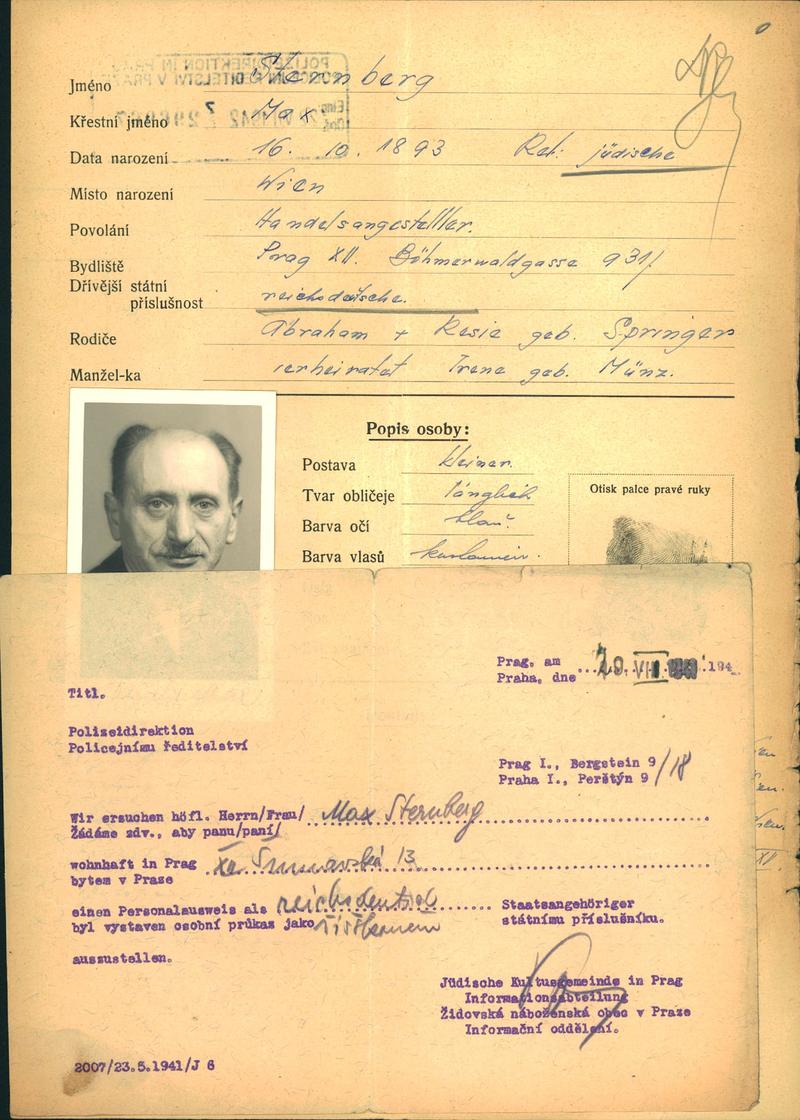 Jméno Sternberg
Křestní jméno Max
Data narození 16. 10. 1893 Rel: jüdische
Místo narození Wien
Povolání Handelsangestellter.
Bydliště Prag XII. Böhmerwaldgasse 931/
Dřívější státní
příslušnost reichsdeutsche.
Rodiče Abraham + Resie geb. Springer
Manžel-ka verheiratet Irene geb. Münz.
Popis osoby:
Postava kleiner.
Tvar obličeje länglich
Barva očí blau.
Barva vlasů
Otisk palce pravé ruky
Prag, am
Praha, dne 29. VIII. 194
Titl.
Polizeidirektion
Policejnímu ředitelství
Prag I., Bergstein 9/18
Praha I., Perštýn 9
Wir ersuchen höfl. Herrn/Frau/ Max Sternberg
Žádáme zdv., aby panu/paní/
wohnhaft in Prag XII. Šumavská 13
bytem v Praze
einen Personalausweis als reichsdeutsch Staatsangehöriger
byl vystaven osobní průkaz jako státnímu příslušníku.
auszustellen.
Jüdische Kultusgemeinde in Prag
Informationsabteilung
Židovská náboženská obec v Praze
Informační oddělení.
2007/23.5.1941/J 6